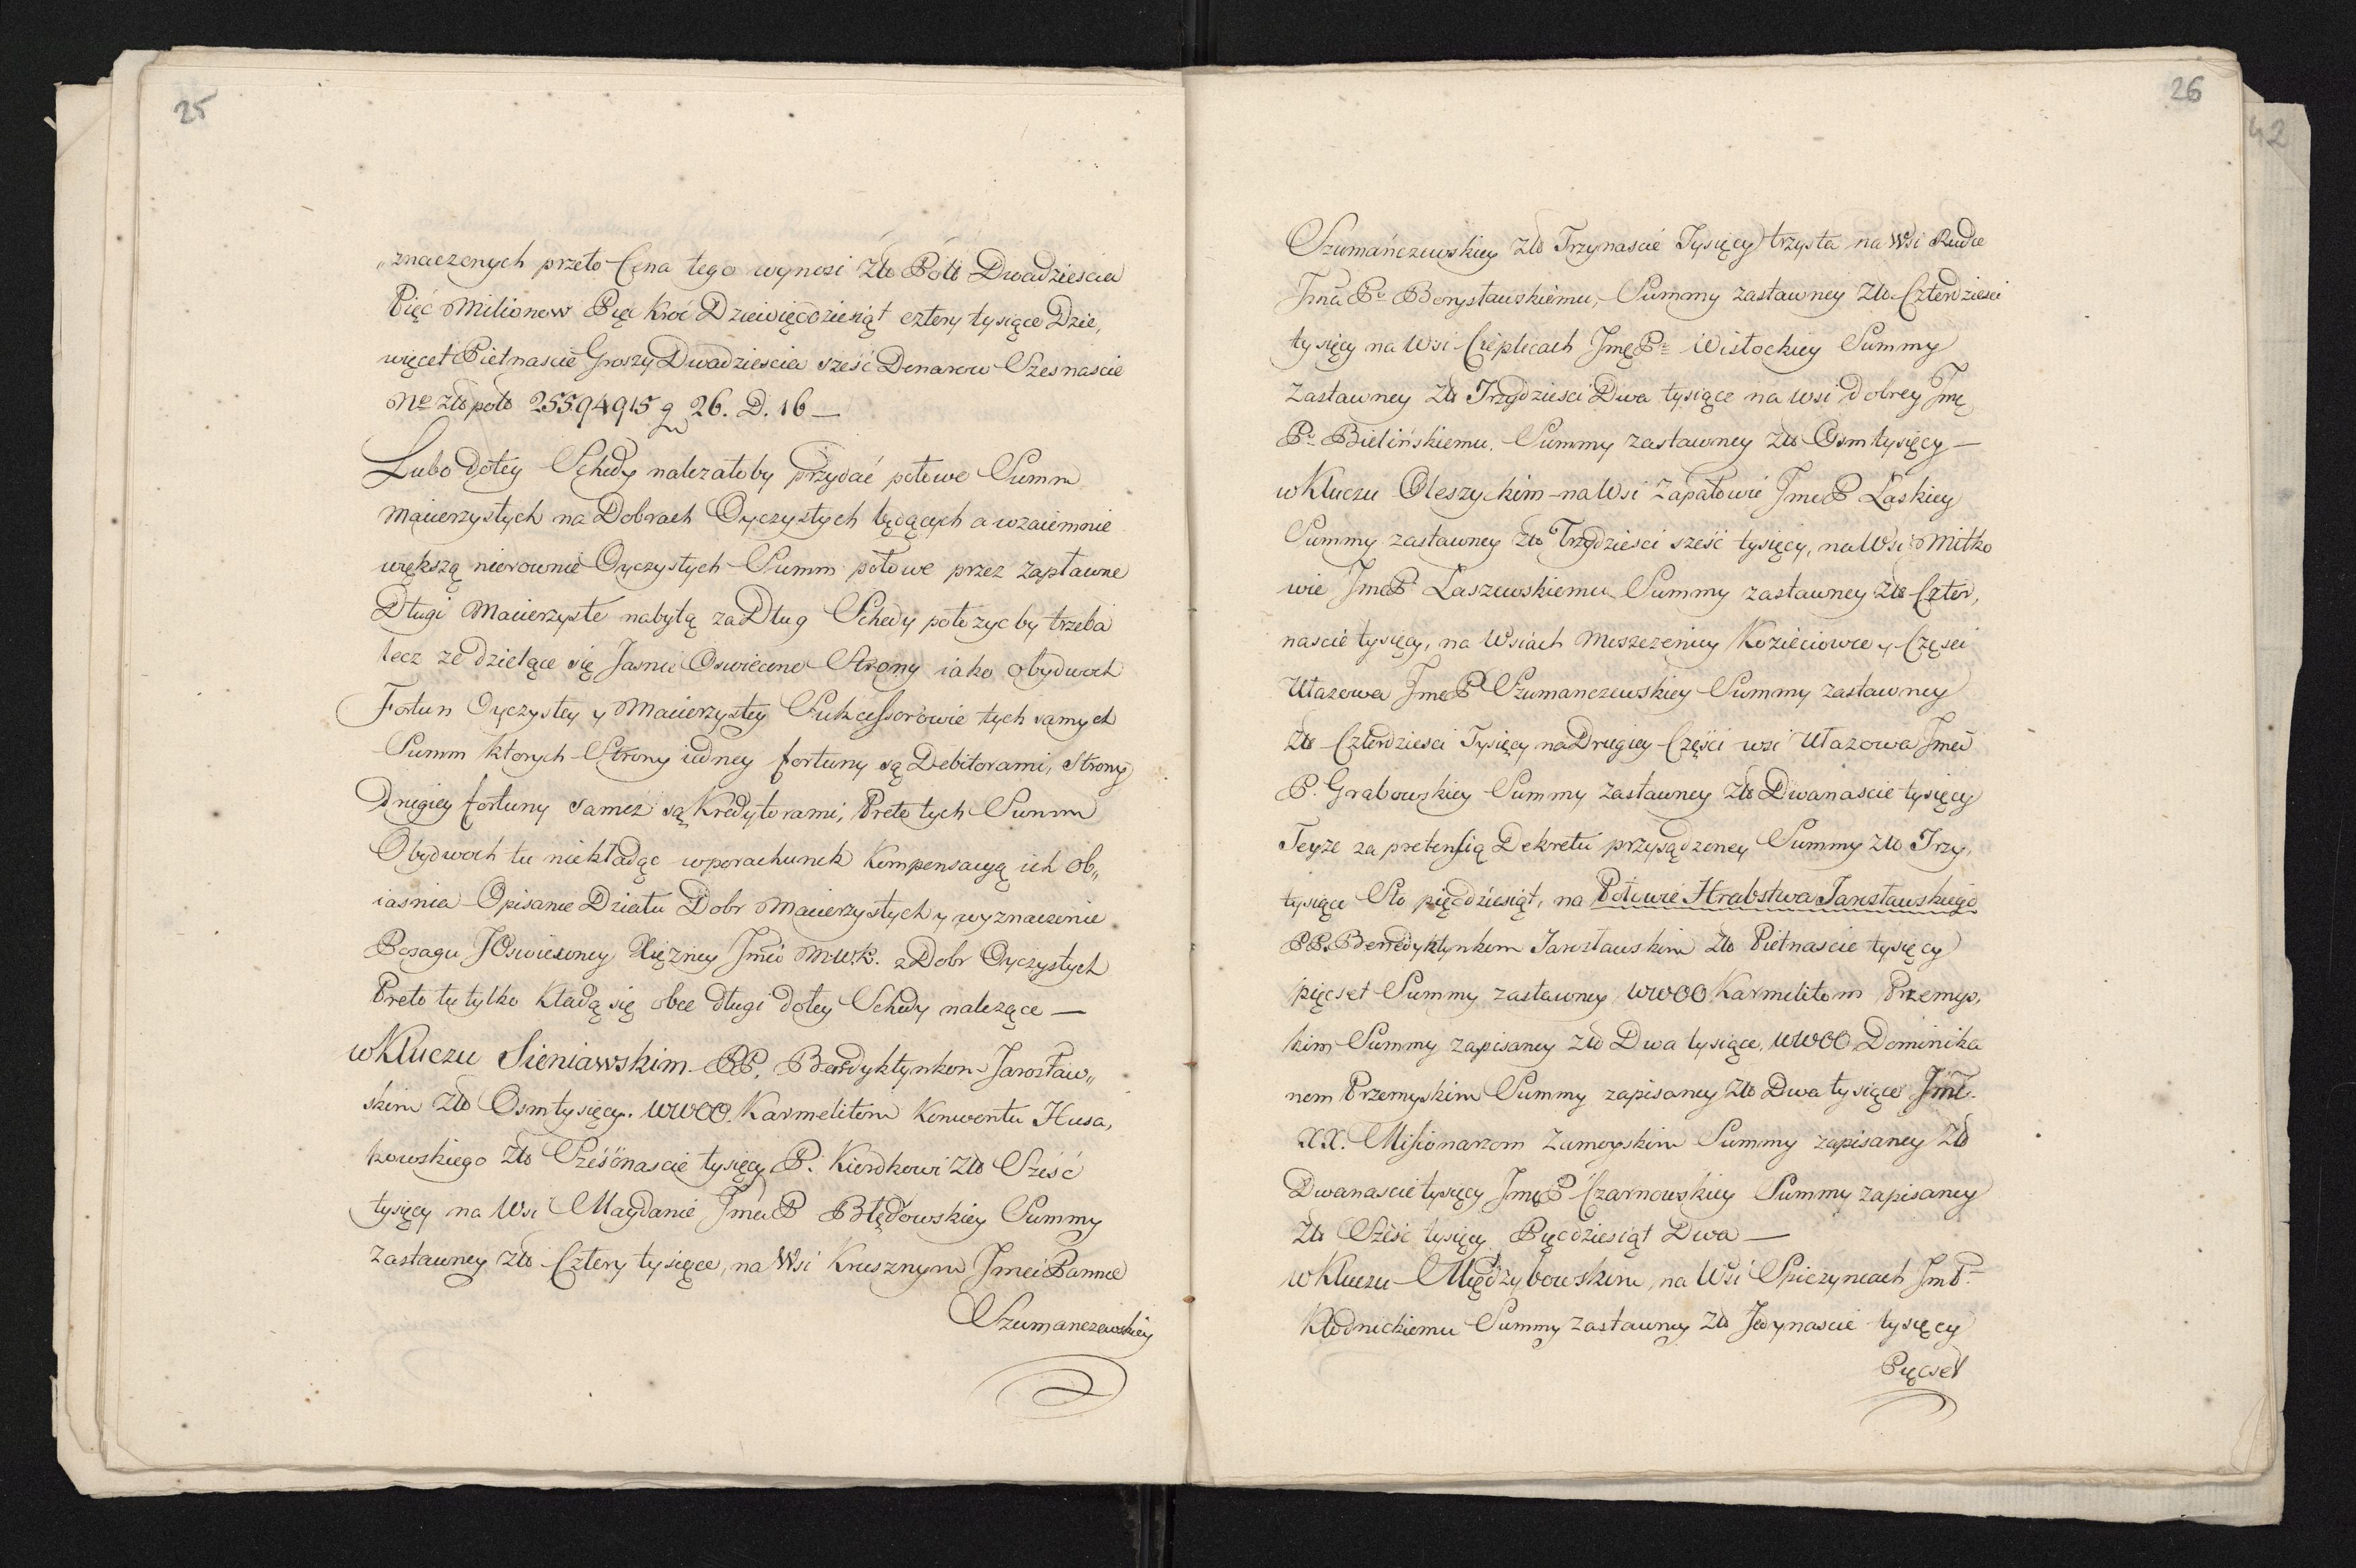 25
„znaczonych przeto Cena tego wynosi Złł Poll Dwadziescia
Pięć Milionow Pięc Kroć Dziewięcdziesiąt cztery tysiące Dzie„
więcet Pietnascie Groszy Dwadziescia szesć Denarow Szesnascie
Nº złł poll 25594915 g 26. D. 16 —
Lubo dotey Schedy nalezałoby przydać połowe Summ
Macierzystych na Dobrach Oyczystych będących a wzaiemnie
większą nierownie Oyczystych Summ połowe przez zapławne
Długi Macierzyste nabytą za Dług Schedy położyc by trzeba
lecz ze dzielące się Jasnie Oswiecone Strony iako obydwoch
Fortun Oyczystey y Macierzystey Sukcessorowie tych samych
Summ ktorych Strony iedney fortuny są Debitorami, Strony
Drugiey fortuny samez są Kredytorami, Preto tych Summ
Obydwoch tu niekładąc wporachunek Kompensacyą ich ob„
iasnia Opisanie Działu Dobr Macierzystych y wyznaczenie
Posagu JOswieconey Xięzney Jmci M.W.K. z Dobr Oyczystych
Preto tu tylko Kładą się obce długi dotey Schedy nalezące —
w Kluczu Sieniawskim PP. Benedyktynkom Jarosław„
skim Złł Osm tysięcy. WWOO. Karmelitom Konwentu Husa„
kowskiego Złł Szesćnascie tysięcy P. Kierdkowi Złł Sześć
tysięcy na Wsi Maydanie Jmci P Błędowskiey Summy
zastawney Złł Cztery tysiące, na Wsi Krusznym Jmci Pannie
Szumanczewskiey
26
42
Szumańczewskiey Złł Trzynascie Tysięcy trzysta na Wsi Rudce
Jmci Pu Borysławskiemu, Summy zastawney Złł Czterdziesci
tysięcy na Wsi Cieplicach Jmę P: Wisłockiey Summy
Zastawney Złł Trzydziesci Dwa tysiące na wsi Dobrey Jmę
P: Bielińskiemu. Summy zastawney Złł Osm tysięcy —
w Kluczu Oleszyckim na Wsi Zapałowie Jmc P Laskiey
Summy zastawney Złł Trzydziesci sześć tysięcy, na Wsi Miłko
wie Jmc P Laszewskiemu Summy zastawney Złł Czter„
nascie tysięcy, na Wsiach Moszczenicy Kozieiowce y Częsci
Ułazowa Jmc P Szumanczewskiey Summy zastawney
Złł Czterdziesci Tysięcy na Drugiey Części wsi Ułazowa Jmci
P. Grabowskiey Summy zastawney Złł Dwanascie tysięcy
Teyze za pretensią Dekretu przysądzoney Summy Złł Trzy„
tysiące Sto pięcdziesiąt, na Połowie Hrabstwa Jarosławskiego
PP. Benedyktynkom Jarosławskim Złł Pietnascie tysięcy
pięcset Summy zastawney WWOO Karmelitom Przemys„
kim Summy zapisaney Złł Dwa tysiące, WWOO Dominika
nom Przemyskim Summy zapisaney Złł Dwa tysiące Jmć
XX. Missionarzom Zamoyskim Summy zapisaney Złł
Dwanascie tysięcy Jmę P Czarnowskiey Summy zapisaney
Złł Szesć tysięcy Pięcdziesiąt Dwa —
w Kluczu Międzybowskim, na Wsi Spiczyncach Jm P:
Kłodnickiemu Summy zastawney Złł Jedynascie tysięcy
Pięcset